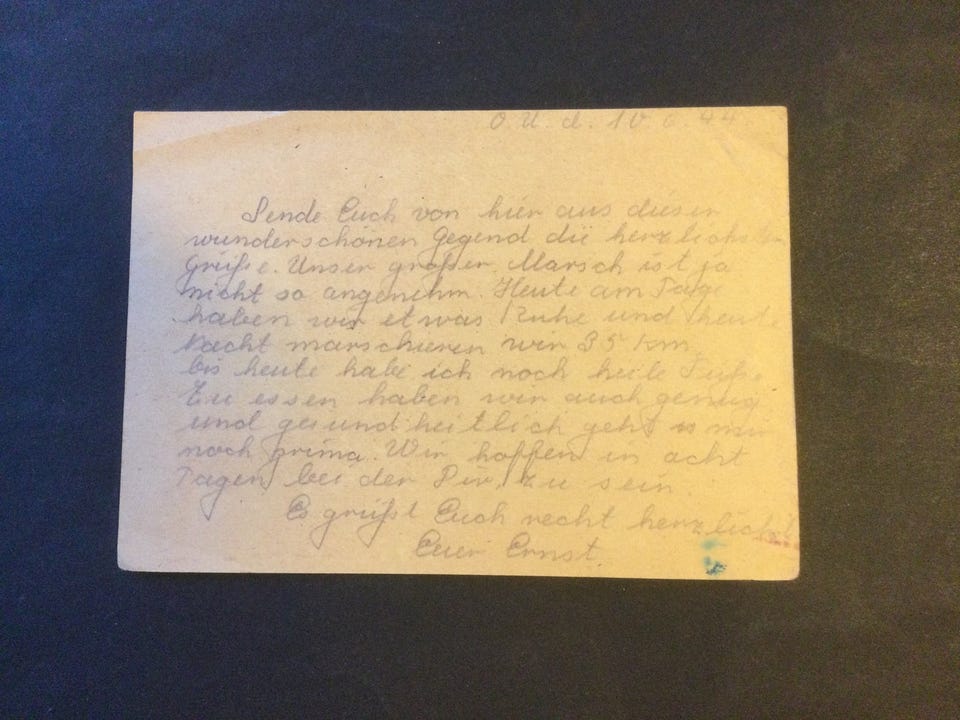 O. U. d. 10. 6. 44
Sende Euch von hier aus dieser
wunderschönen Gegend die herzlichsten
Grüße. Unser großer Marsch ist ja
nicht so angenehm. Heute am Tage
haben wir etwas Ruhe und heute
Nacht marschieren wir 35 km.
bis heute habe ich noch heile Füße.
Zu essen haben wir auch genug
und gesundheitlich geht es mir
noch prima. Wir hoffen in acht
Tagen bei der Div. zu sein.
Es grüßt Euch recht herzlichst
Euer Ernst.